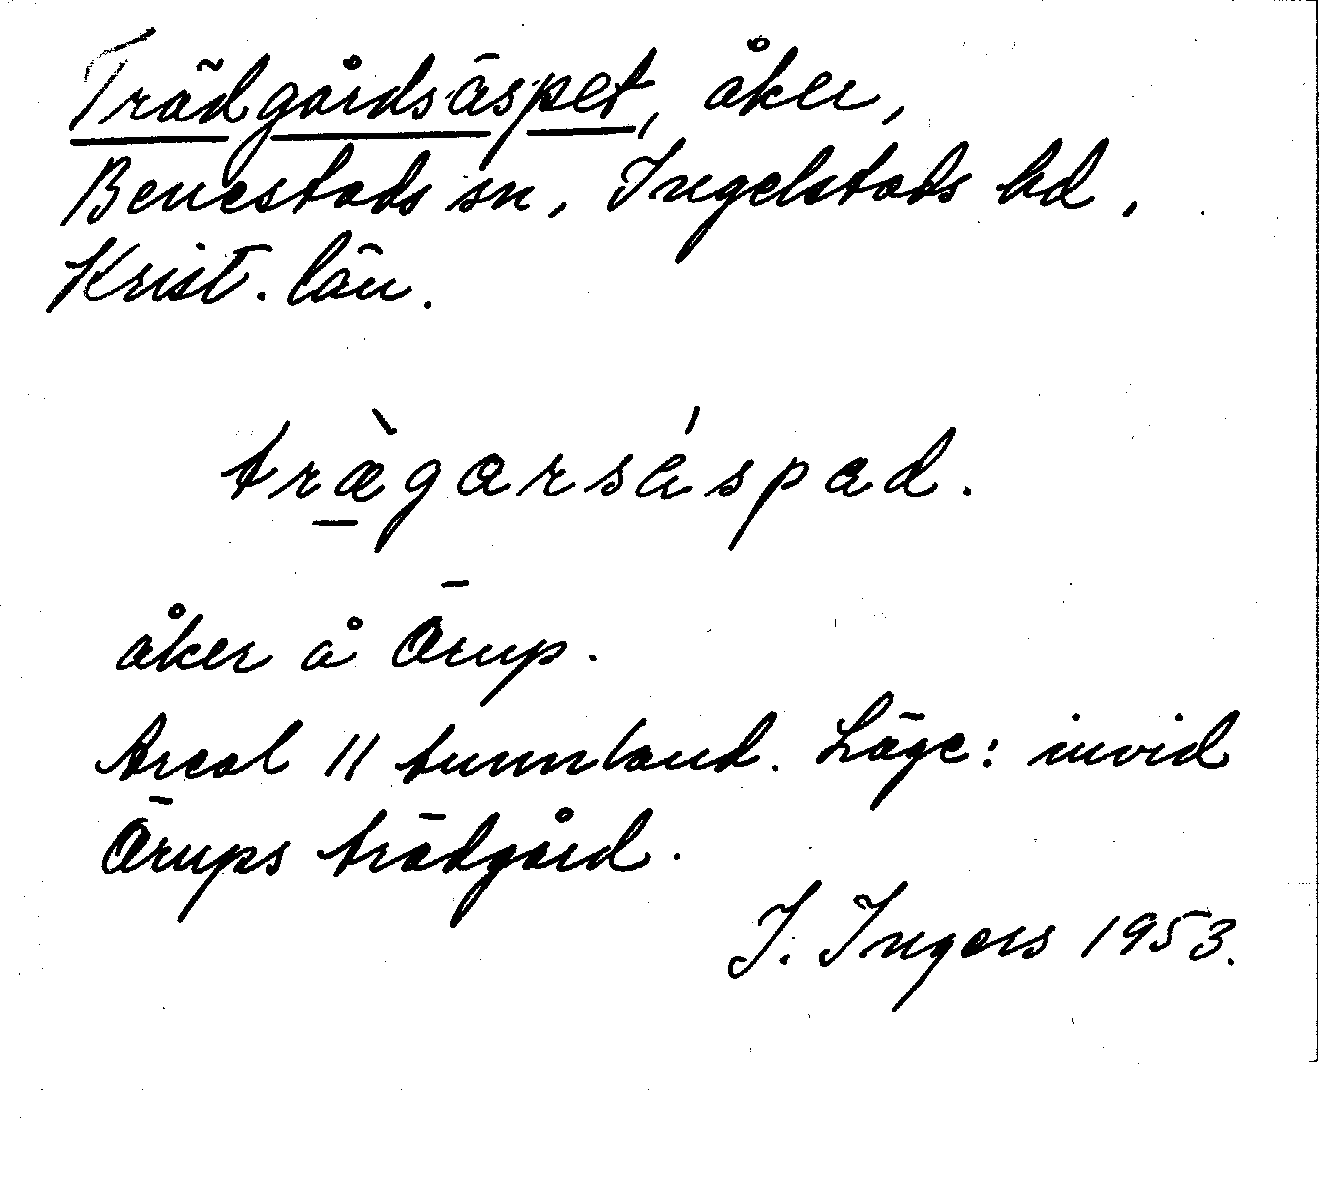 Trädgårdsäspet, åker,
Benestads sn, Ingelstads hd,
Krist. län.
træ̠̀garséspad.
åker å Örup.
Areal 11 tunnland. Läge: invid
Örups trädgård.
I. Ingers 1953.